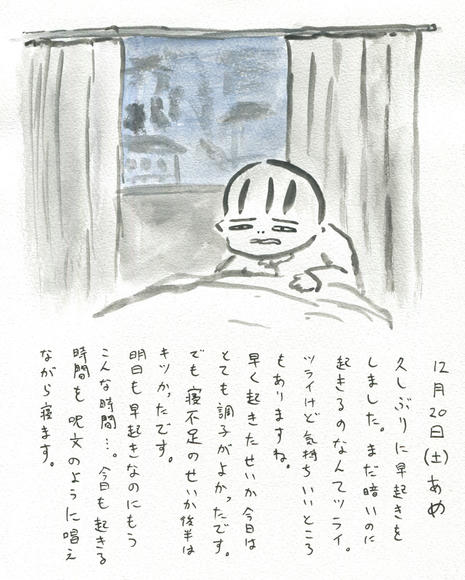 12月20日(土)あめ
久しぶりに早起きを
しました。まだ暗いのに
起きるのなんてツライ。
ツライけど気持ちいいところ
もありますね。
早く起きたせいか今日は
とても調子がよかったです。
でも寝不足のせいか後半は
キツかったです。
明日も早起きなのにもう
こんな時間…。今日も起きる
時間を呪文のように唱え
ながら寝ます。